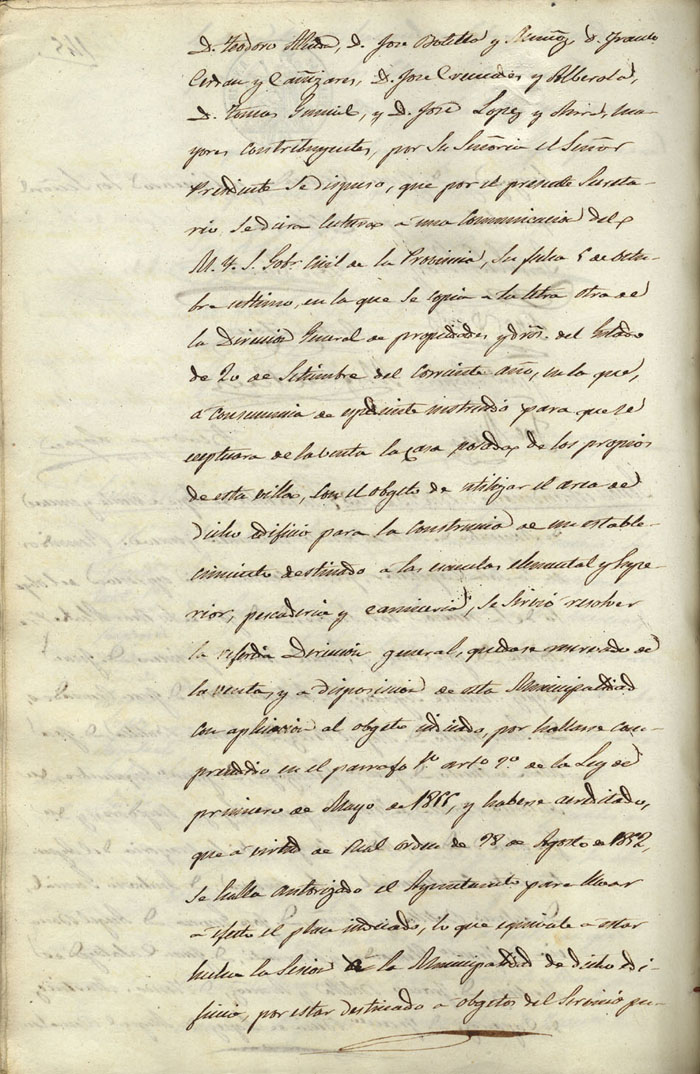 D. Teodoro Alicia, D. Jose Botella y Muñoz, D. Franco.
Cerdan y Cañizares, D. Jose Cremades y Alberola,
D. Tomas Gumiel, y D. José Lopez y Abad, ma-
yores contribuyentes, por Su Señoria el Señor
Presidente se dispuso, que por el presente Secreta-
rio, se diera lectura a una Comunicacion del
M. Y. S. Gobr. Civil de la Provincia, su fecha 5 de Octu-
bre ultimo, en la que se copia a la letra otra de
la Direccion General de propiedades y dros. del Estado
de 20 de Setiembre del Corriente año, en la que,
a consecuencia de espediente instruido para que se
eceptuara de la venta la casa posada de los propios
de esta villa, con el objeto de utilizar el area de
dicho edificio para la construccion de un estable-
cimiento destinado a las escuelas elemental y Supe-
rior, pescaderia y carniceria, se sirvió resolver
la referida Direccion general, quedase reservado de
la venta, y a disposicion de esta Municipalidad
con aplicacion al objeto indicado, por hallarse com-
prendido en el parrafo 1º artº 2º de la Ley de
primero de Mayo de 1855, y haberse acreditado,
que a virtud de Real orden de 28 de Agosto de 1852,
se halla autorizado el Ayuntamiento para llevar
a efecto el plan indicado, lo que equivale a estar
hecha la Sesion a la Municipalidad de dicho edi-
ficio, por estar destinado a objetos del Servicio pu-